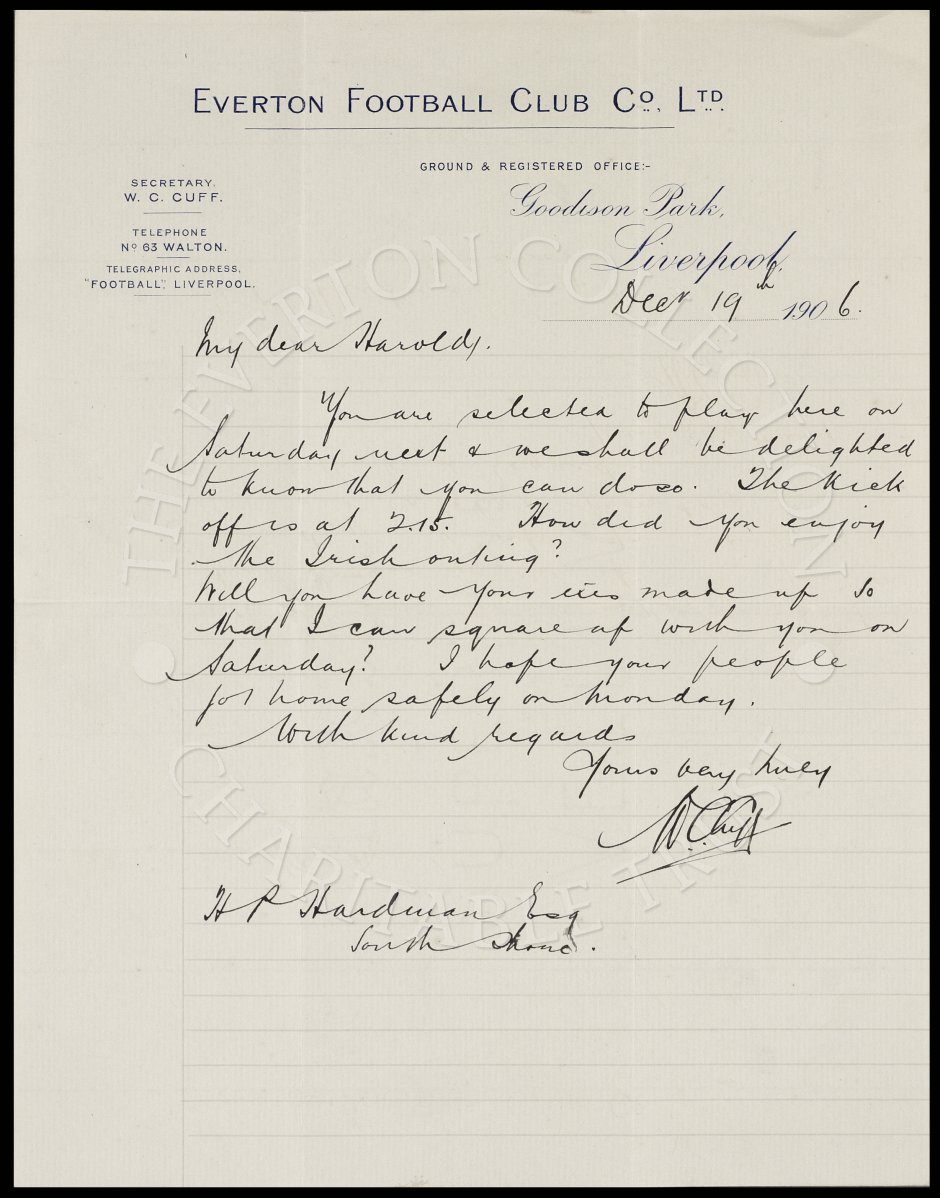 EVERTON FOOTBALL CLUB Co., LTD.
GROUND & REGISTERED OFFICE:-
SECRETARY.
W. C. CUFF.
Goodison Park,
TELEPHONE
No 63 WALTON.
Liverpool,
TELEGRAPHIC ADDRESS,
"FOOTBALL", LIVERPOOL.
Decr 19th 1906.
My dear Harold,
You are selected to play here on
Saturday next & we shall be delighted
to know that you can do so. The kick
off is at 2.15. How did you enjoy
the Irish outing?
Will you have your exes made up so
that I can square up with you on
Saturday? I hope your people
got home safely on Monday.
With kind regards
Yours very truly
W.C. Cuff
H P Hardman Esq
South Shore.
THE EVERTON COLLECTION
CHARITABLE TRUST